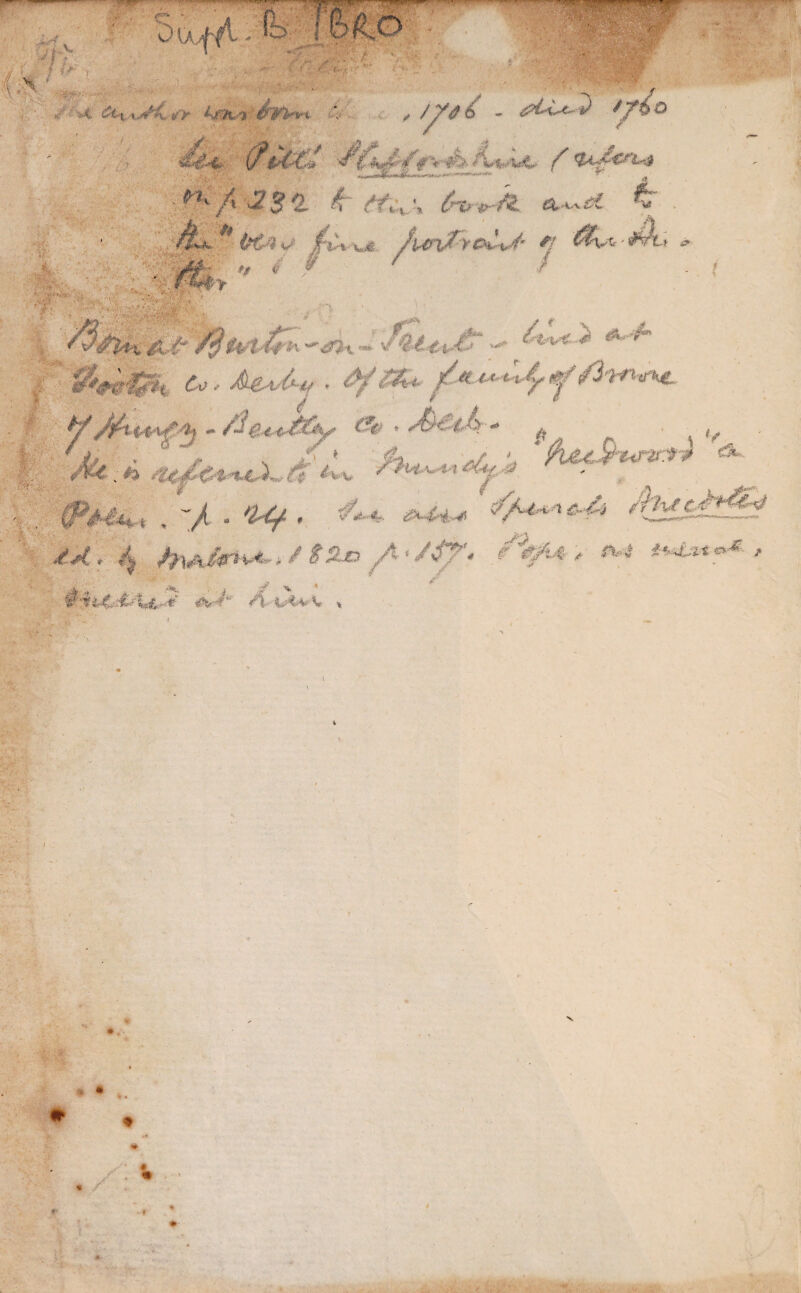 Suppl. B / BRO
The author was born , 1706 - died 1760
See Pitt's Staffordshire (refers
on p. 232 to this book and to
the "very fine portrait of the Au-
thor"
Born at Burton-on-Trent - lived at
Co. Derby. Of the family of Browne
of Hungry-Bentley Co. Derb-
He is referred to in Mundy's "Needwood" a
Poem. - p. 24. See also Spence's Anecdotes
ed. by Malone. 1820 p. 157. Pope, as usual,
sneered at him.